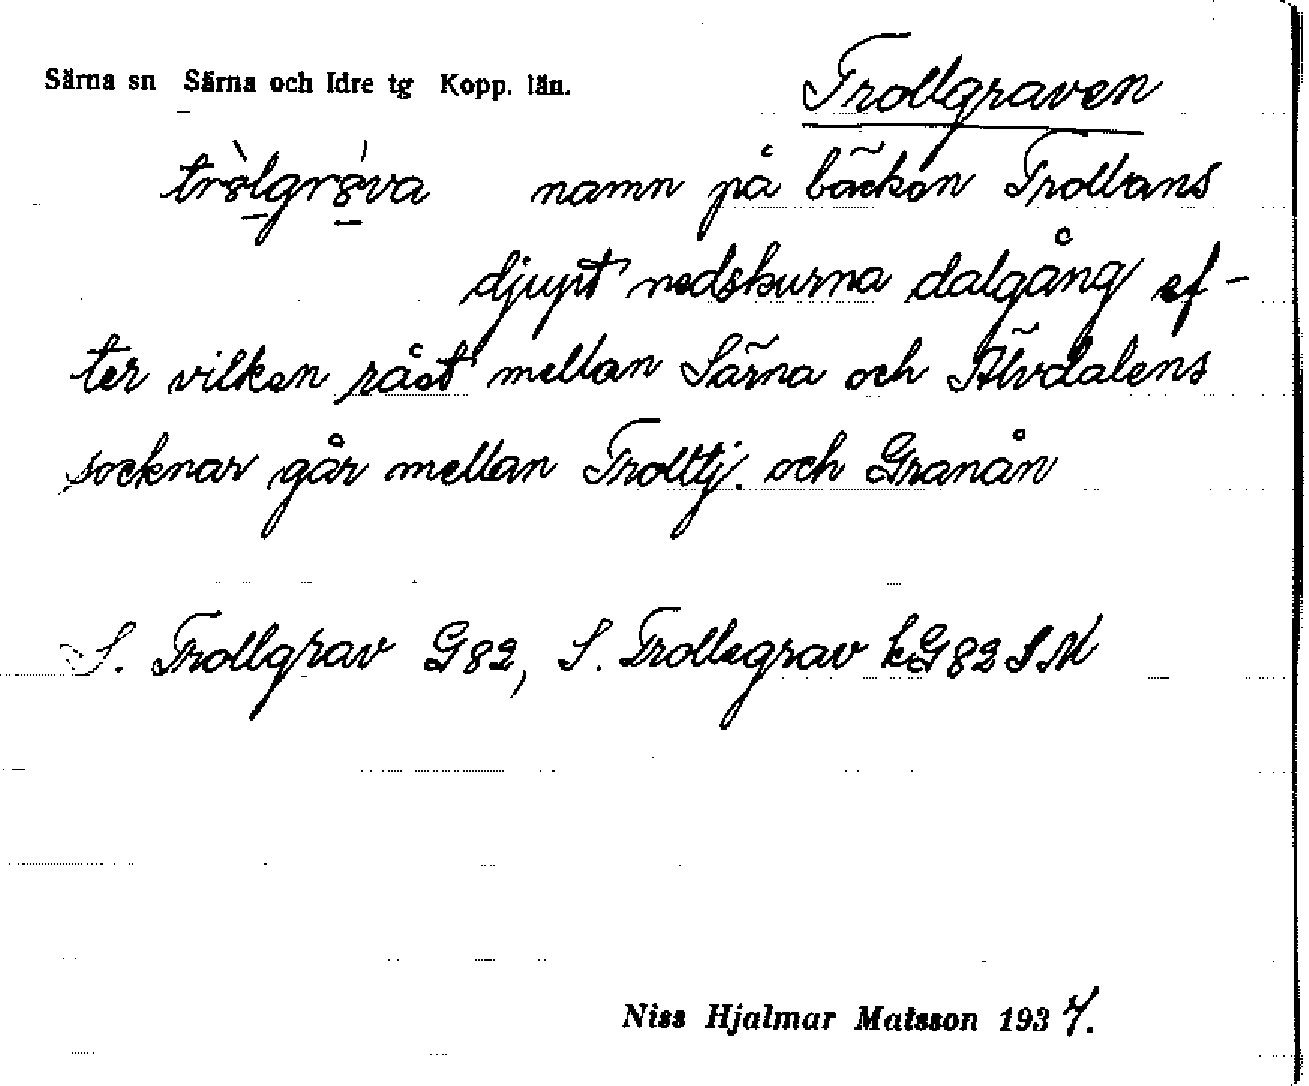 Särna sn Särna och Idre tg Kopp. län.
Trollgraven
namn på bäcken Trollans
djupt nedskurna dalgång ef-
ter vilken råst mellan Särna och Älvdalens
socknar går mellan Trolltj. och Granån
S. Trollgrav G82, S. Trollegrav kG82 SM
Niss Hjalmar Matsson 1937.